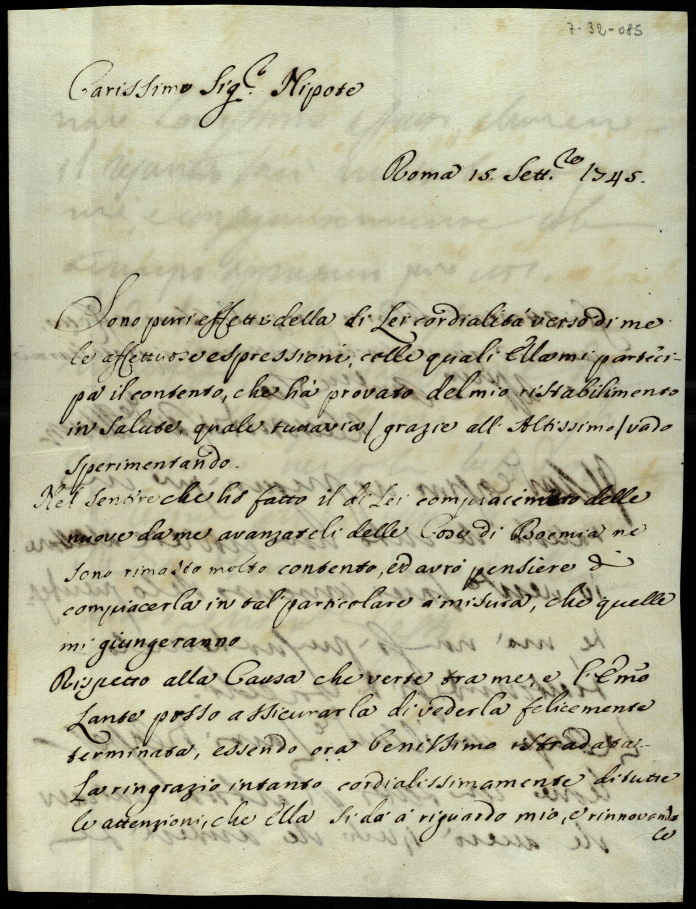 7-32-085
Carissimo Sig.re Nipote
Roma 15. Sett.bre 1745.
Sono puri effetti della di Lei cordialità verso di me
le affettuose espressioni, colle quali Ella mi parteci-
pa il contento, che hà provato del mio ristabilimento
in Salute, quale tuttavia / grazie all'Altissimo / vado
sperimentando.
Nel sentire che hò fatto il di Lei compiacimento delle
nuove da me avanzateli delle Cose di Boemia ne
sono rimasto molto contento, ed avrò pensiere di
compiacerla in tal particolare à misura, che quelle
mi giungeranno
Rispetto alla Causa che verte tra me, e l'Emo
Lante posso assicurarla di vederla felicemente
terminata, essendo ora benissimo istradata.
La ringrazio intanto cordialissimamente di tutte
le attenzioni, che Ella si dà à riguardo mio, e rinnovando
le